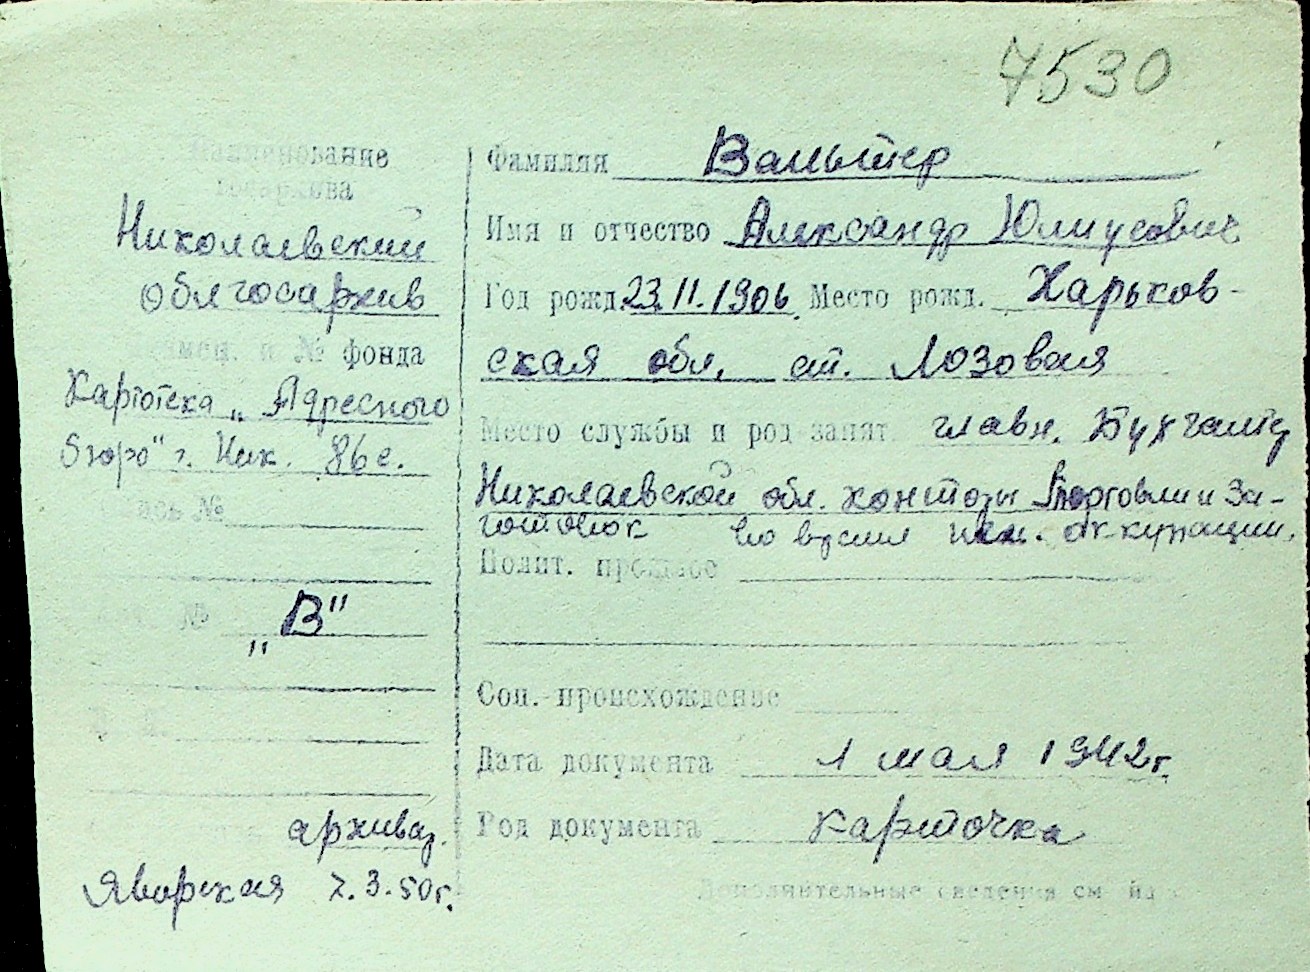 7530
Наименование
госархива
Николаевский
облгосархив
Наимен. и № фонда
Картотека „Адресного
бюро" г. Ник. 86 с.
Опись №
„В"
архивар.
Яворская 7.3.50г.
Фамилия Вальтер
Имя и отчество Александр Юлиусович
Год рожд. 23.11.1906 Место рожд. Харьков-
ская обл. ст. Лозовая
Место службы и род занят. главн. Бухгалтер
Николаевской обл. конторы Торговли и За-
готовок во время нем. оккупации.
Полит. прошлое
Соц.-происхождение
Дата документа 1 мая 1942г.
Род документа карточка
Дополнительные сведения см.